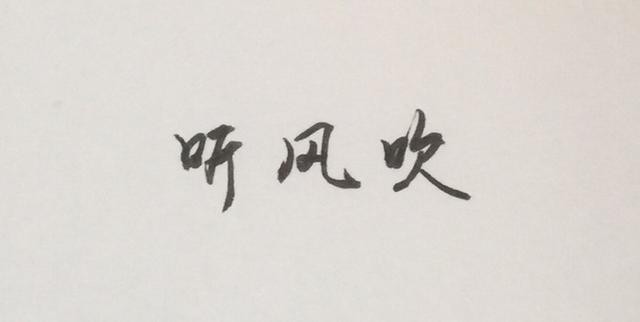 听风吹